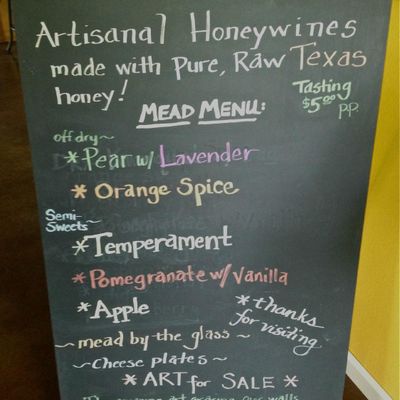 Artisanal Honeywines
made with Pure, Raw Texas
honey!
Tasting
$5.00
P.P.
MEAD MENU:
off dry~
*Pear w/ Lavender
* Orange Spice
Semi-
Sweets~
*Temperament
*Pomegranate w/ Vanilla
*Apple
*thanks
for visiting
~mead by the glass~
~Cheese plates~
* ART for SALE *
art gracing our walls